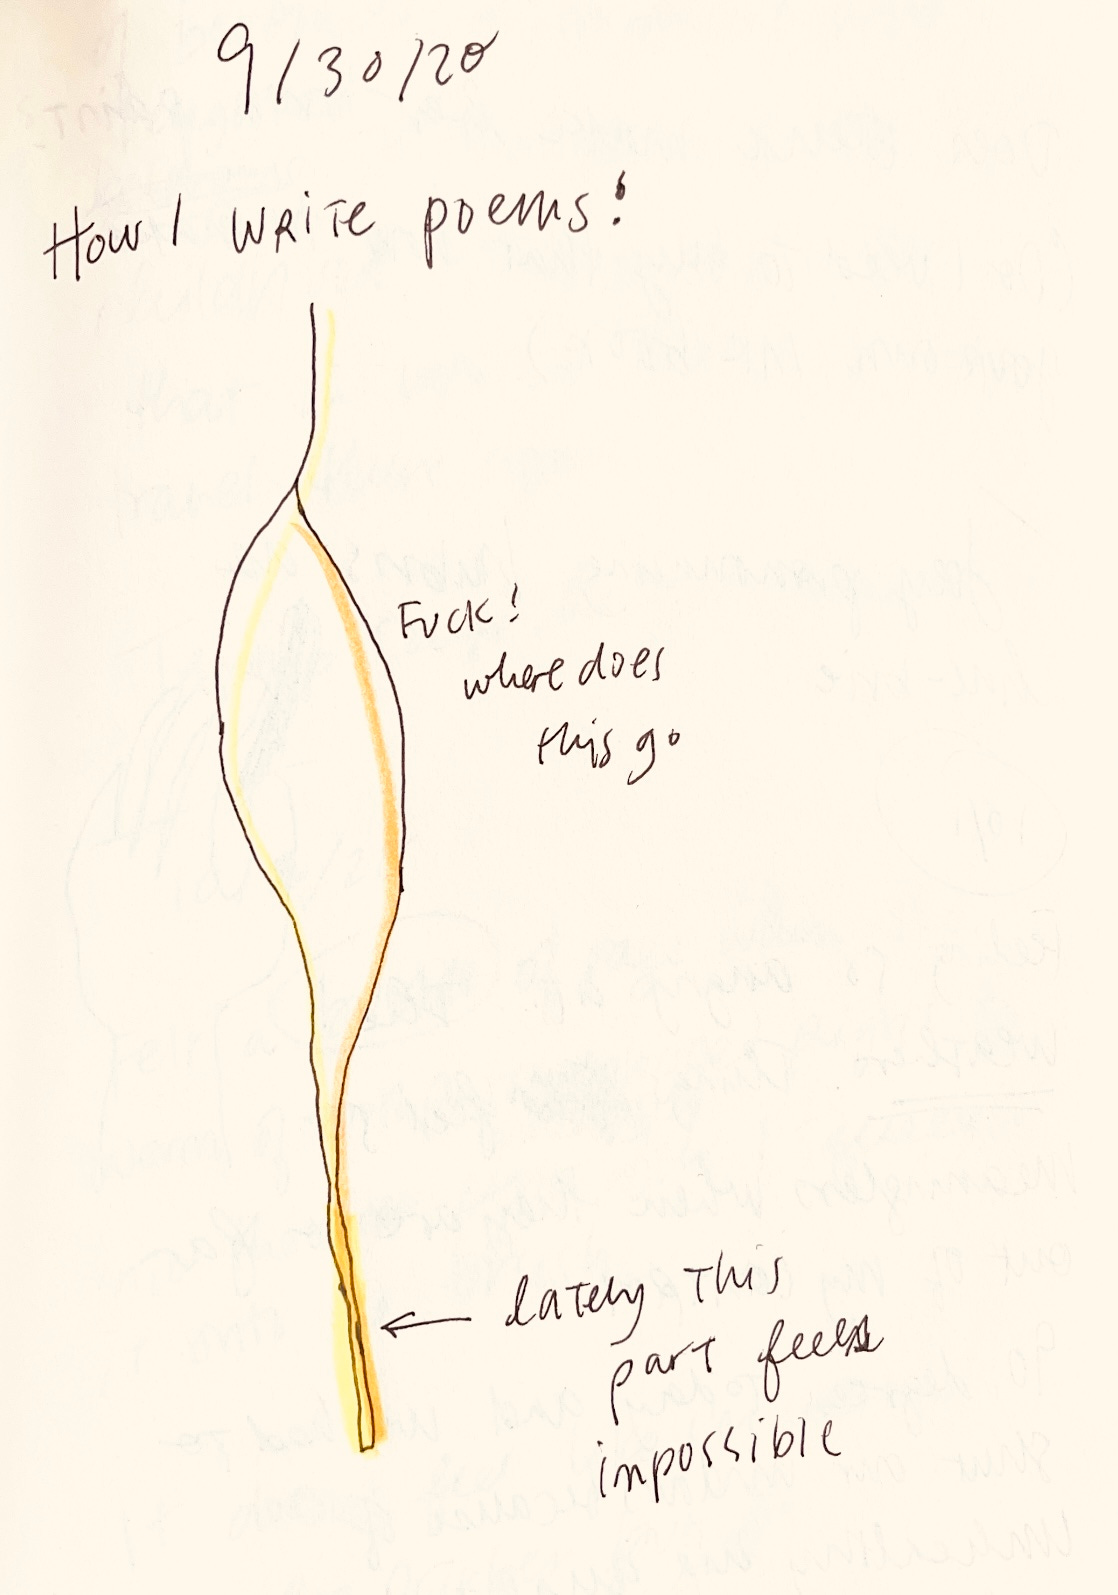 9/30/20
How I write poems!
Fuck!
where does
this go
lately this
part feels
impossible